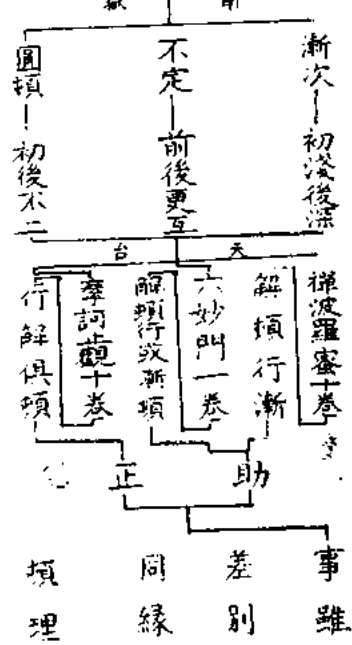 漸次
初淺後深
不定
前後更互
圓頓
初後不二
天台
禪波羅蜜十卷
解頓行漸
六妙門一卷
解頓行或漸頓
摩訶止觀十卷
行解俱頓
助
正
事雖
差別
同緣
頓理